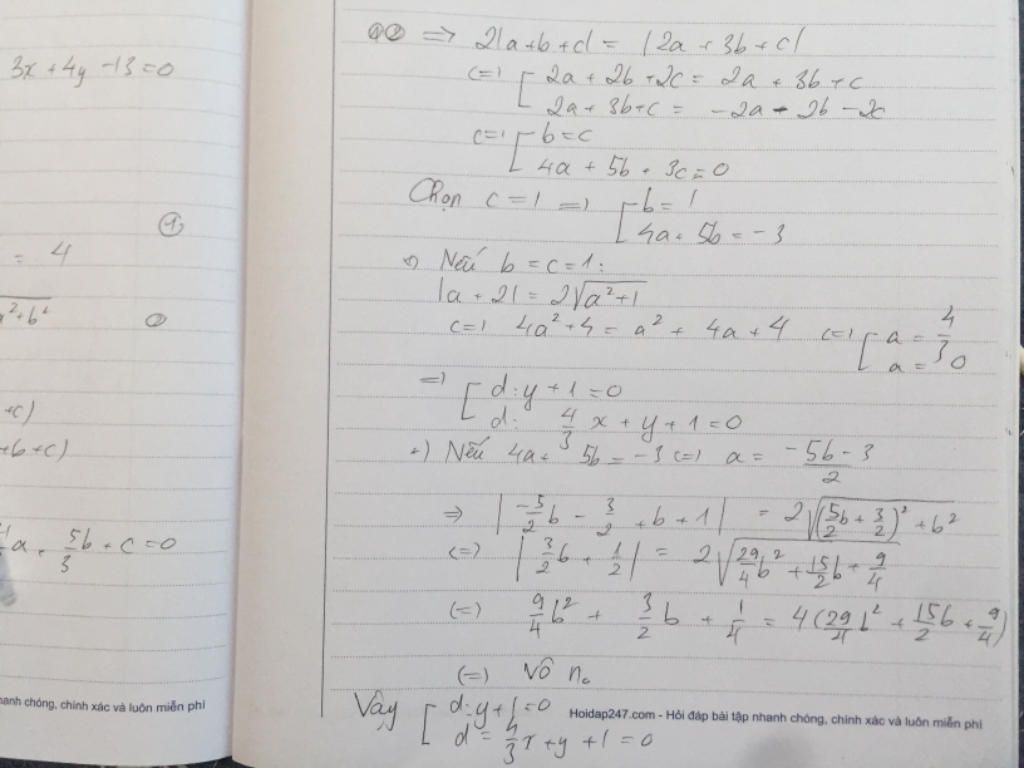 3x + 4y - 13 = 0
①
= 4
a²+b²
②
+c)
+b+c)
a + 5b/3 + c = 0
anh chóng, chính xác và luôn miễn phí
①② => 2|a+b+c| = |2a + 3b + c|
<=> [ 2a + 2b + 2c = 2a + 3b + c
2a + 3b + c = -2a - 2b - 2c
<=> [ b = c
4a + 5b + 3c = 0
Chọn c = 1 => [ b = 1
4a + 5b = -3
+) Nếu b = c = 1:
|a + 2| = 2√(a²+1)
<=> 4a² + 4 = a² + 4a + 4 <=> [ a = 4/3
a = 0
=> [ d: y + 1 = 0
d: 4/3 x + y + 1 = 0
+) Nếu 4a + 5b = -3 <=> a = (-5b - 3)/2
=> |-5/2 b - 3/2 + b + 1| = 2√((5b/2 + 3/2)² + b²)
<=> |3/2 b + 1/2| = 2√(29/4 b² + 15/2 b + 9/4)
<=> 9/4 b² + 3/2 b + 1/4 = 4(29/4 b² + 15b/2 + 9/4)
<=> Vô n.
Vậy [ d: y + 1 = 0
d = 4/3 x + y + 1 = 0
Hoidap247.com - Hỏi đáp bài tập nhanh chóng, chính xác và luôn miễn phí